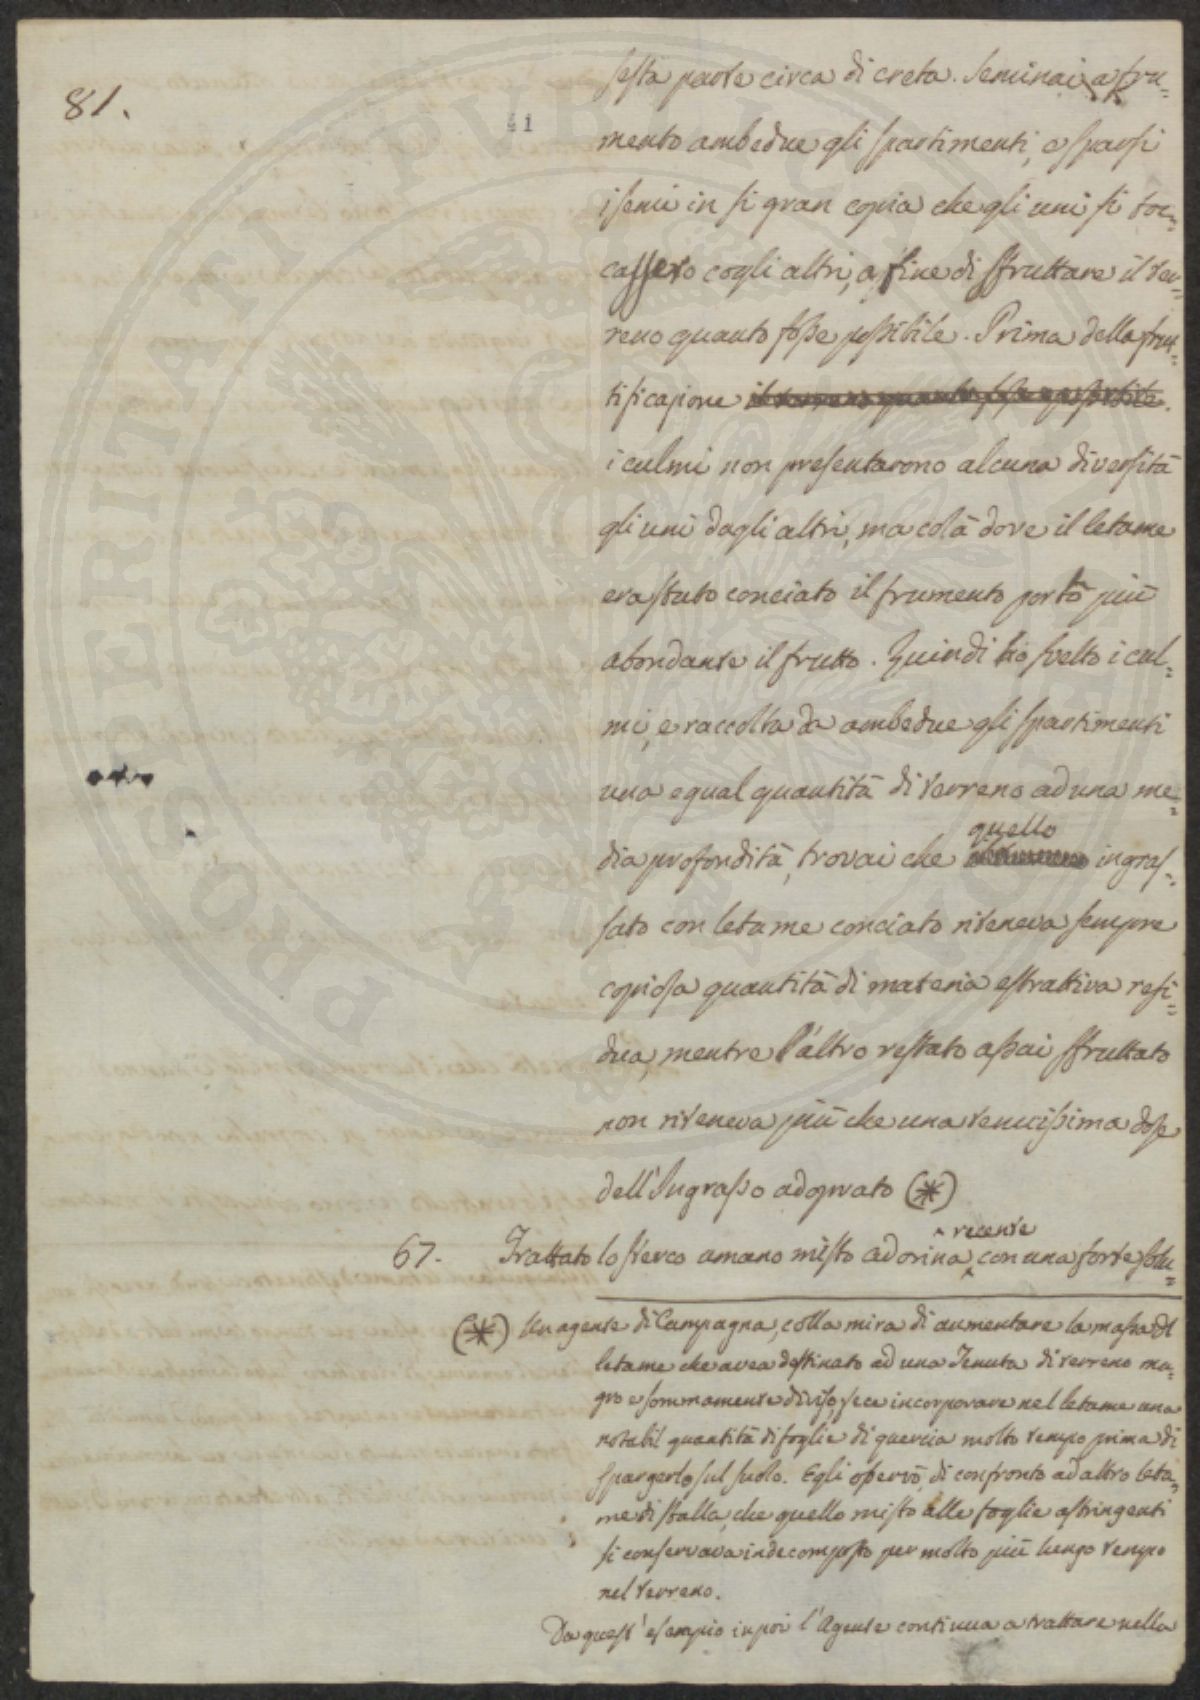 81.
41
sesta parte circa di creta. Seminai a fru=
mento ambedue gli spartimenti, e sparsi
i semi in si gran copia che gli uni si toc=
cassero cogli altri, a fine di sfruttare il ter=
reno quanto fosse possibile. Prima della frut=
tificazione il terreno quanto fosse possibile.
i culmi non presentarono alcuna diversità
gli uni dagli altri, ma colà dove il letame
era stato conciato il frumento portò più
abondante il frutto. Quindi ho svelto i cul=
mi, e raccolta da ambedue gli spartimenti
una egual quantità di terreno ad una me=
quello
dia profondità, trovai che ingras=
sato con letame conciato riteneva sempre
copiosa quantità di materia estrattiva resi=
dua, mentre l'altro restato assai sfruttato
non riteneva più che una tenuissima dose
dell'Ingrasso adoprato (*)
recente
67. Trattato lo sterco umano misto ad orina, con una forte solu=
(*) Un agente di Campagna, colla mira di aumentare la massa di
letame che avea destinato ad una Tenuta di terreno ma=
gro e sommamente diviso, fece incorporare nel letame una
notabil quantità di foglie di quercia molto tempo prima di
spargerlo sul suolo. Egli osservò, di confronto ad altro leta=
me di stalla, che quello misto alle foglie astringenti
si conservava indecomposto per molto più lungo tempo
nel terreno.
Da quest'esempio in poi l'Agente continua a trattare nella